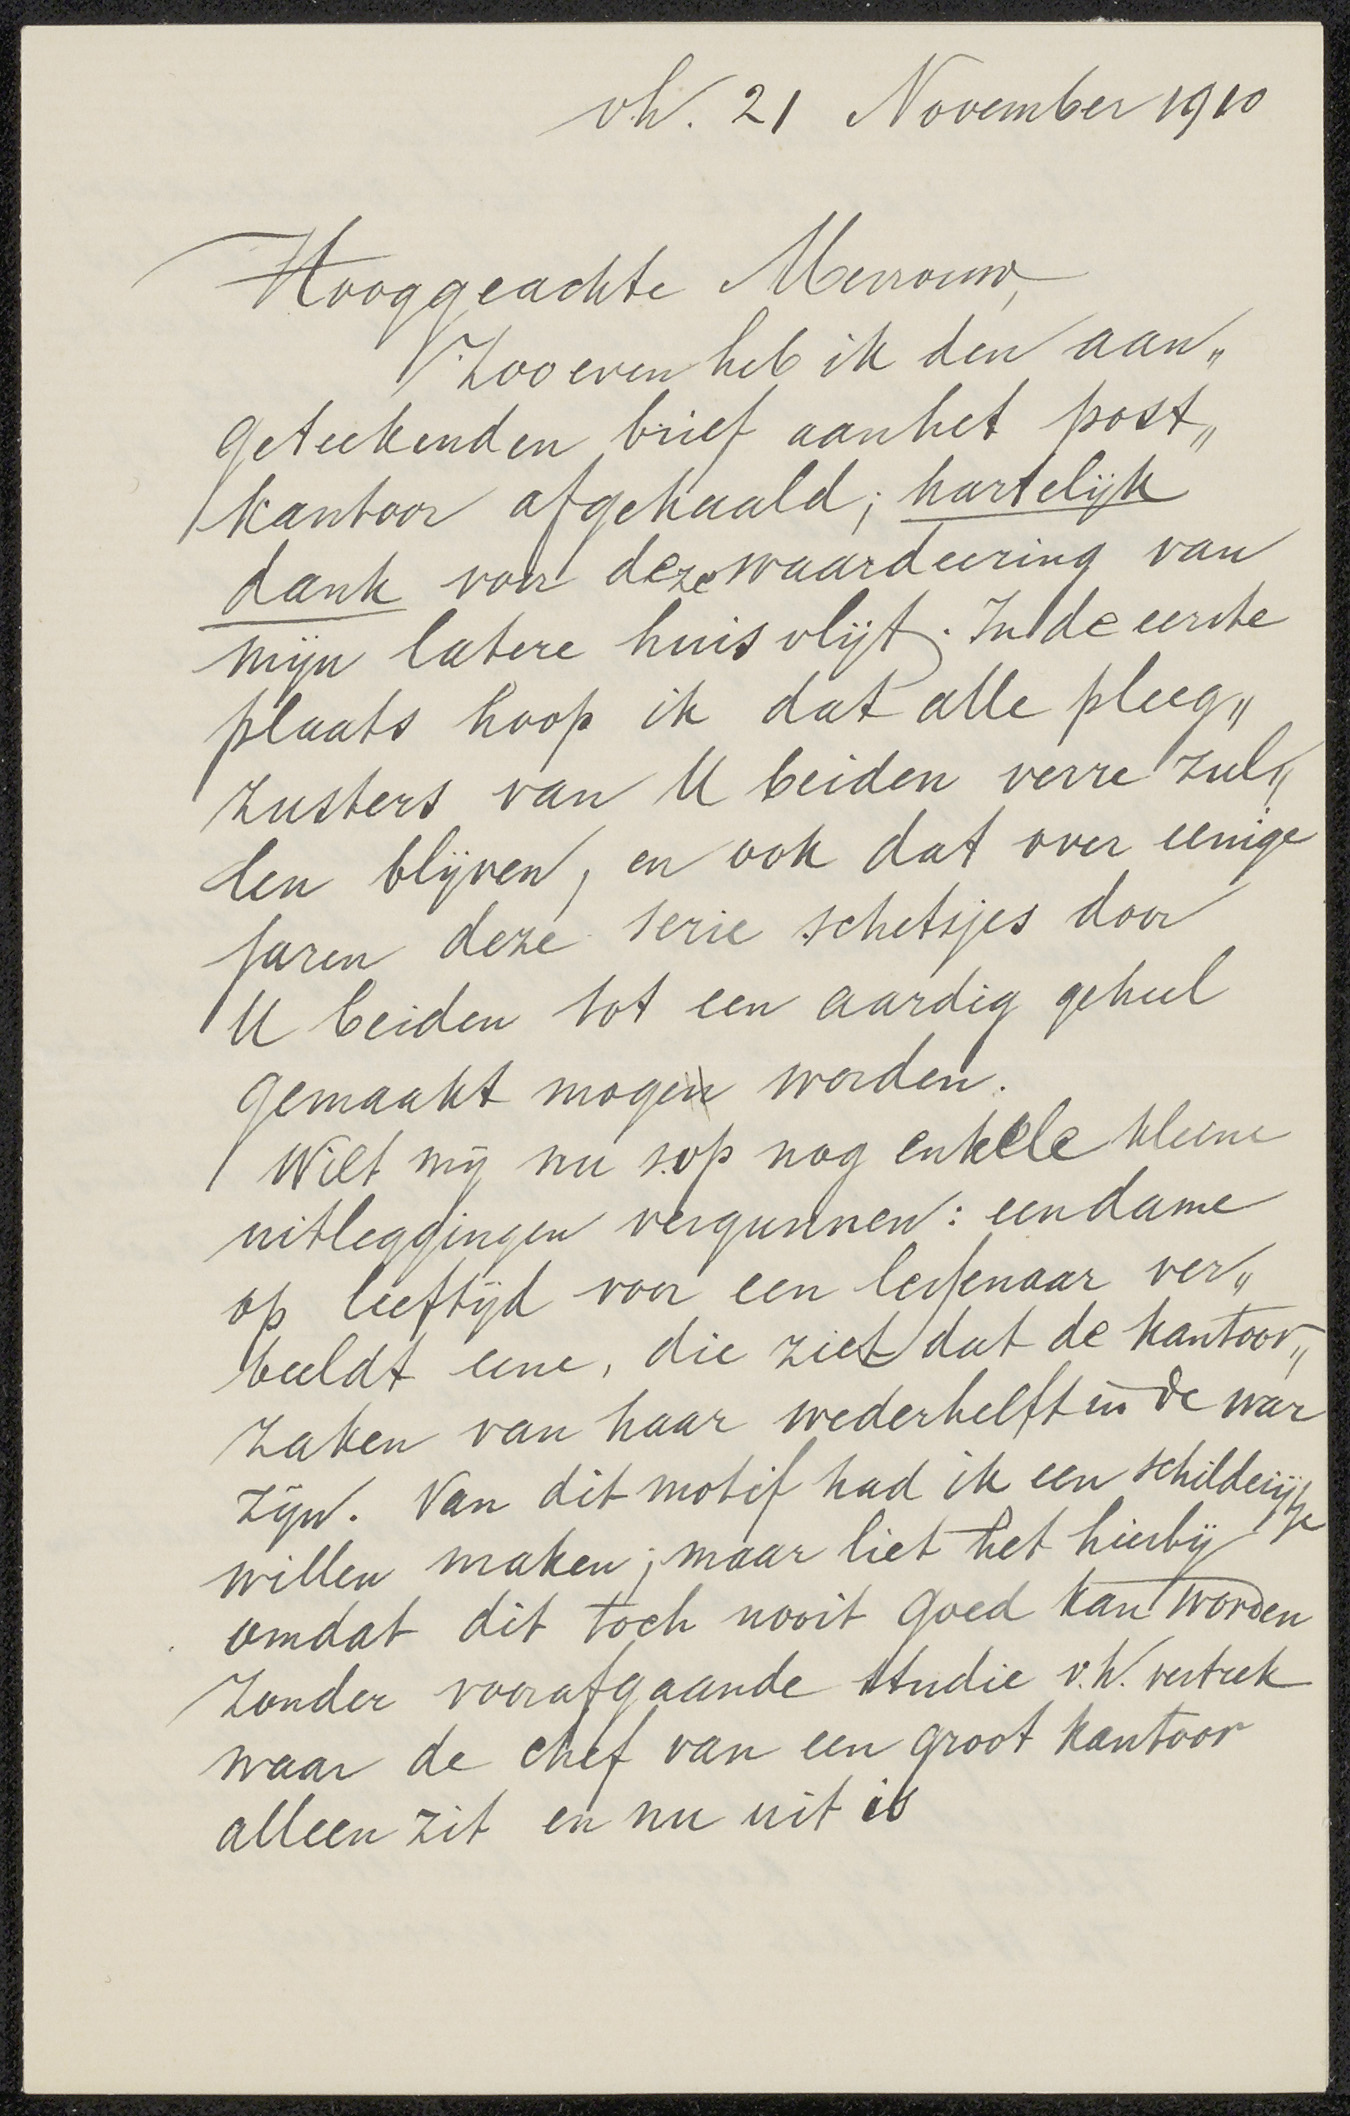 v.h. 21 November 1910
Hooggeachte Mevrouw,
Zoo even heb ik den aan„
geteekenden brief aan het post„
kantoor afgehaald; hartelijk
dank voor deze waardeering van
mijn latere huisvlijt. In de eerste
plaats hoop ik dat alle pleeg„
zusters van U beiden verre zul„
len blijven, en ook dat over eenige
jaren deze serie schetsjes door
U beiden tot een aardig geheel
gemaakt mogen worden.
Wilt mij nu s.op nog enkele kleine
uitleggingen vergunnen: een dame
op leeftijd voor een lessenaar ver„
beeldt eene, die ziet dat de kantoor„
zaken van haar wederhelft in de war
zijn. Van dit motif had ik een schilderijtje
willen maken; maar liet het hierbij
omdat dit toch nooit goed kan worden
zonder voorafgaande studie v.h. vertrek
waar de chef van een groot kantoor
alleen zit en nu uit is